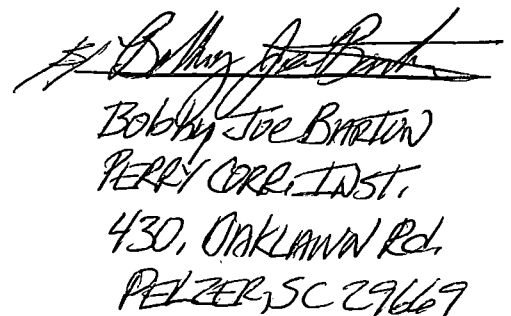 s/ Bobby Joe Barton
Bobby Joe BARTON
PERRY CORR. INST.
430, OAKLAWN Rd.
PELZER, SC 29669